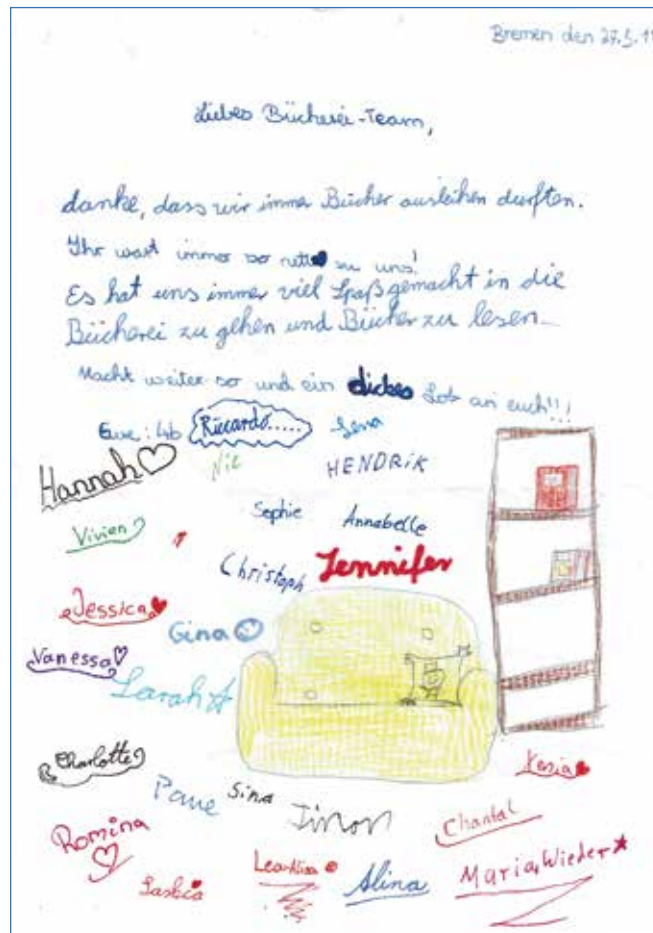 Bremen den 27.5.11
Liebes Bücherei-Team,
danke, dass wir imme Bücher ausleihen durften.
Ihr wart immer so nett zu uns!
Es hat uns immer viel Spaß gemacht in die
Bücherei zu gehen und Bücher zu lesen
Macht weiter so und ein dickes Lob an euch!!!
Eure: 4b Riccardo..... Lena
Hannah Nic HENDRIK
Sophie Annabelle
Vivien
Christoph Jennifer
Jessica Gina
Vanessa
Sarah
Charlotte Kesia
Sina
Romina Chantal
Saskia Alina Maria Wieder